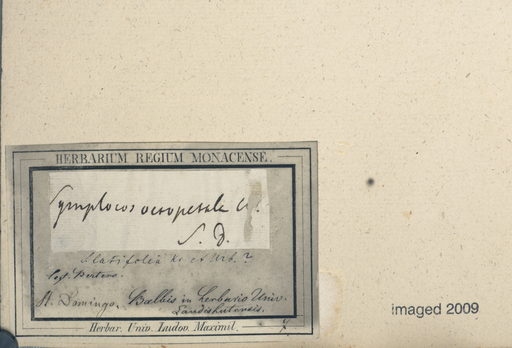 HERBARIUM REGIUM MONACENSE.
Symplocos octopetala
S. D.
S. latifolia Kr. et Urb. ?
leg. Bertero.
St. Domingo. Balbis in herbario Univ.
Landishutensis.
Herbar. Univ. Ludov. Maximil.
imaged 2009